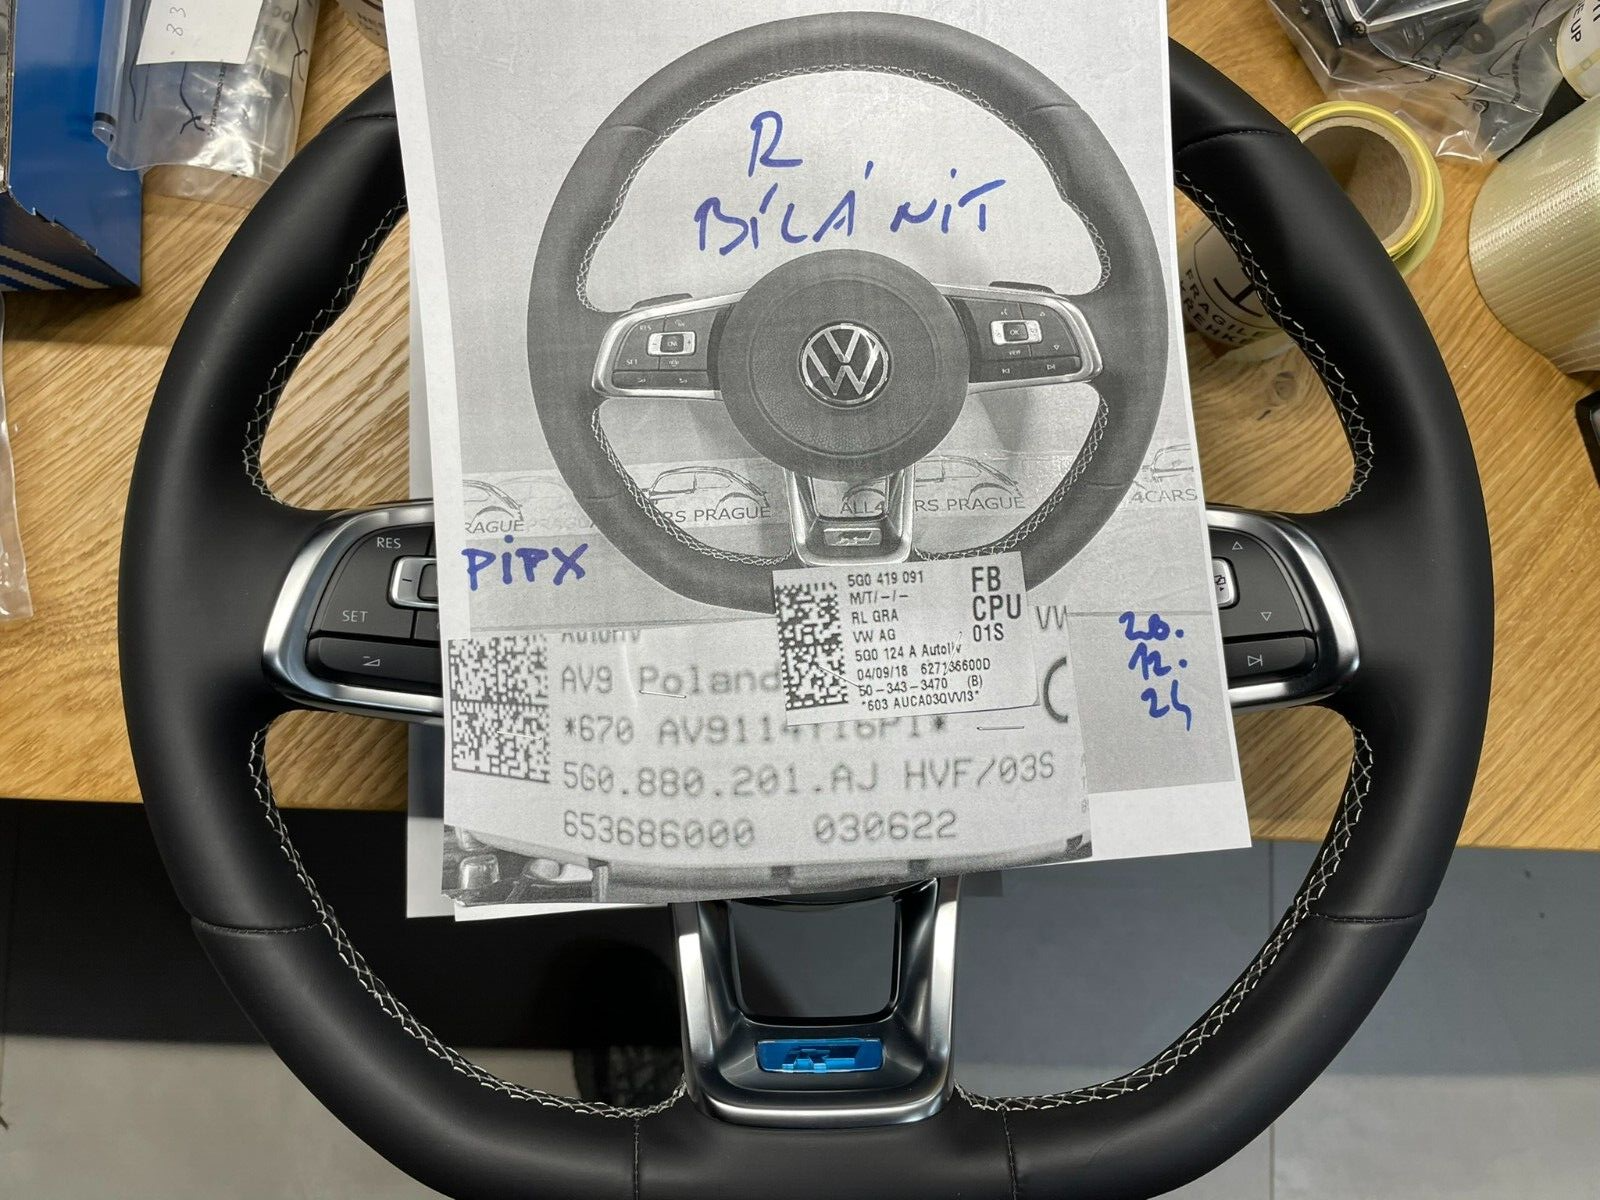 R
BÍLÁ NIT
RES
CNL
SET
OK
VIEW
RAGUE
RS PRAGUE
ALL4
RS PRAGUE
4CARS
PiPX
28.
12.
24
5G0 419 091
FB
M/T/-/-
CPU
RL GRA
01S
VW AG
5G0 124 A Autoliv
04/09/18 627136600D
50-343-3470 (B)
*603 AUCA03QVVI3*
VW
AV9 Poland
5G0.880.201.AJ HVF/03S
653686000 030622
RES
SET
FRAGILE